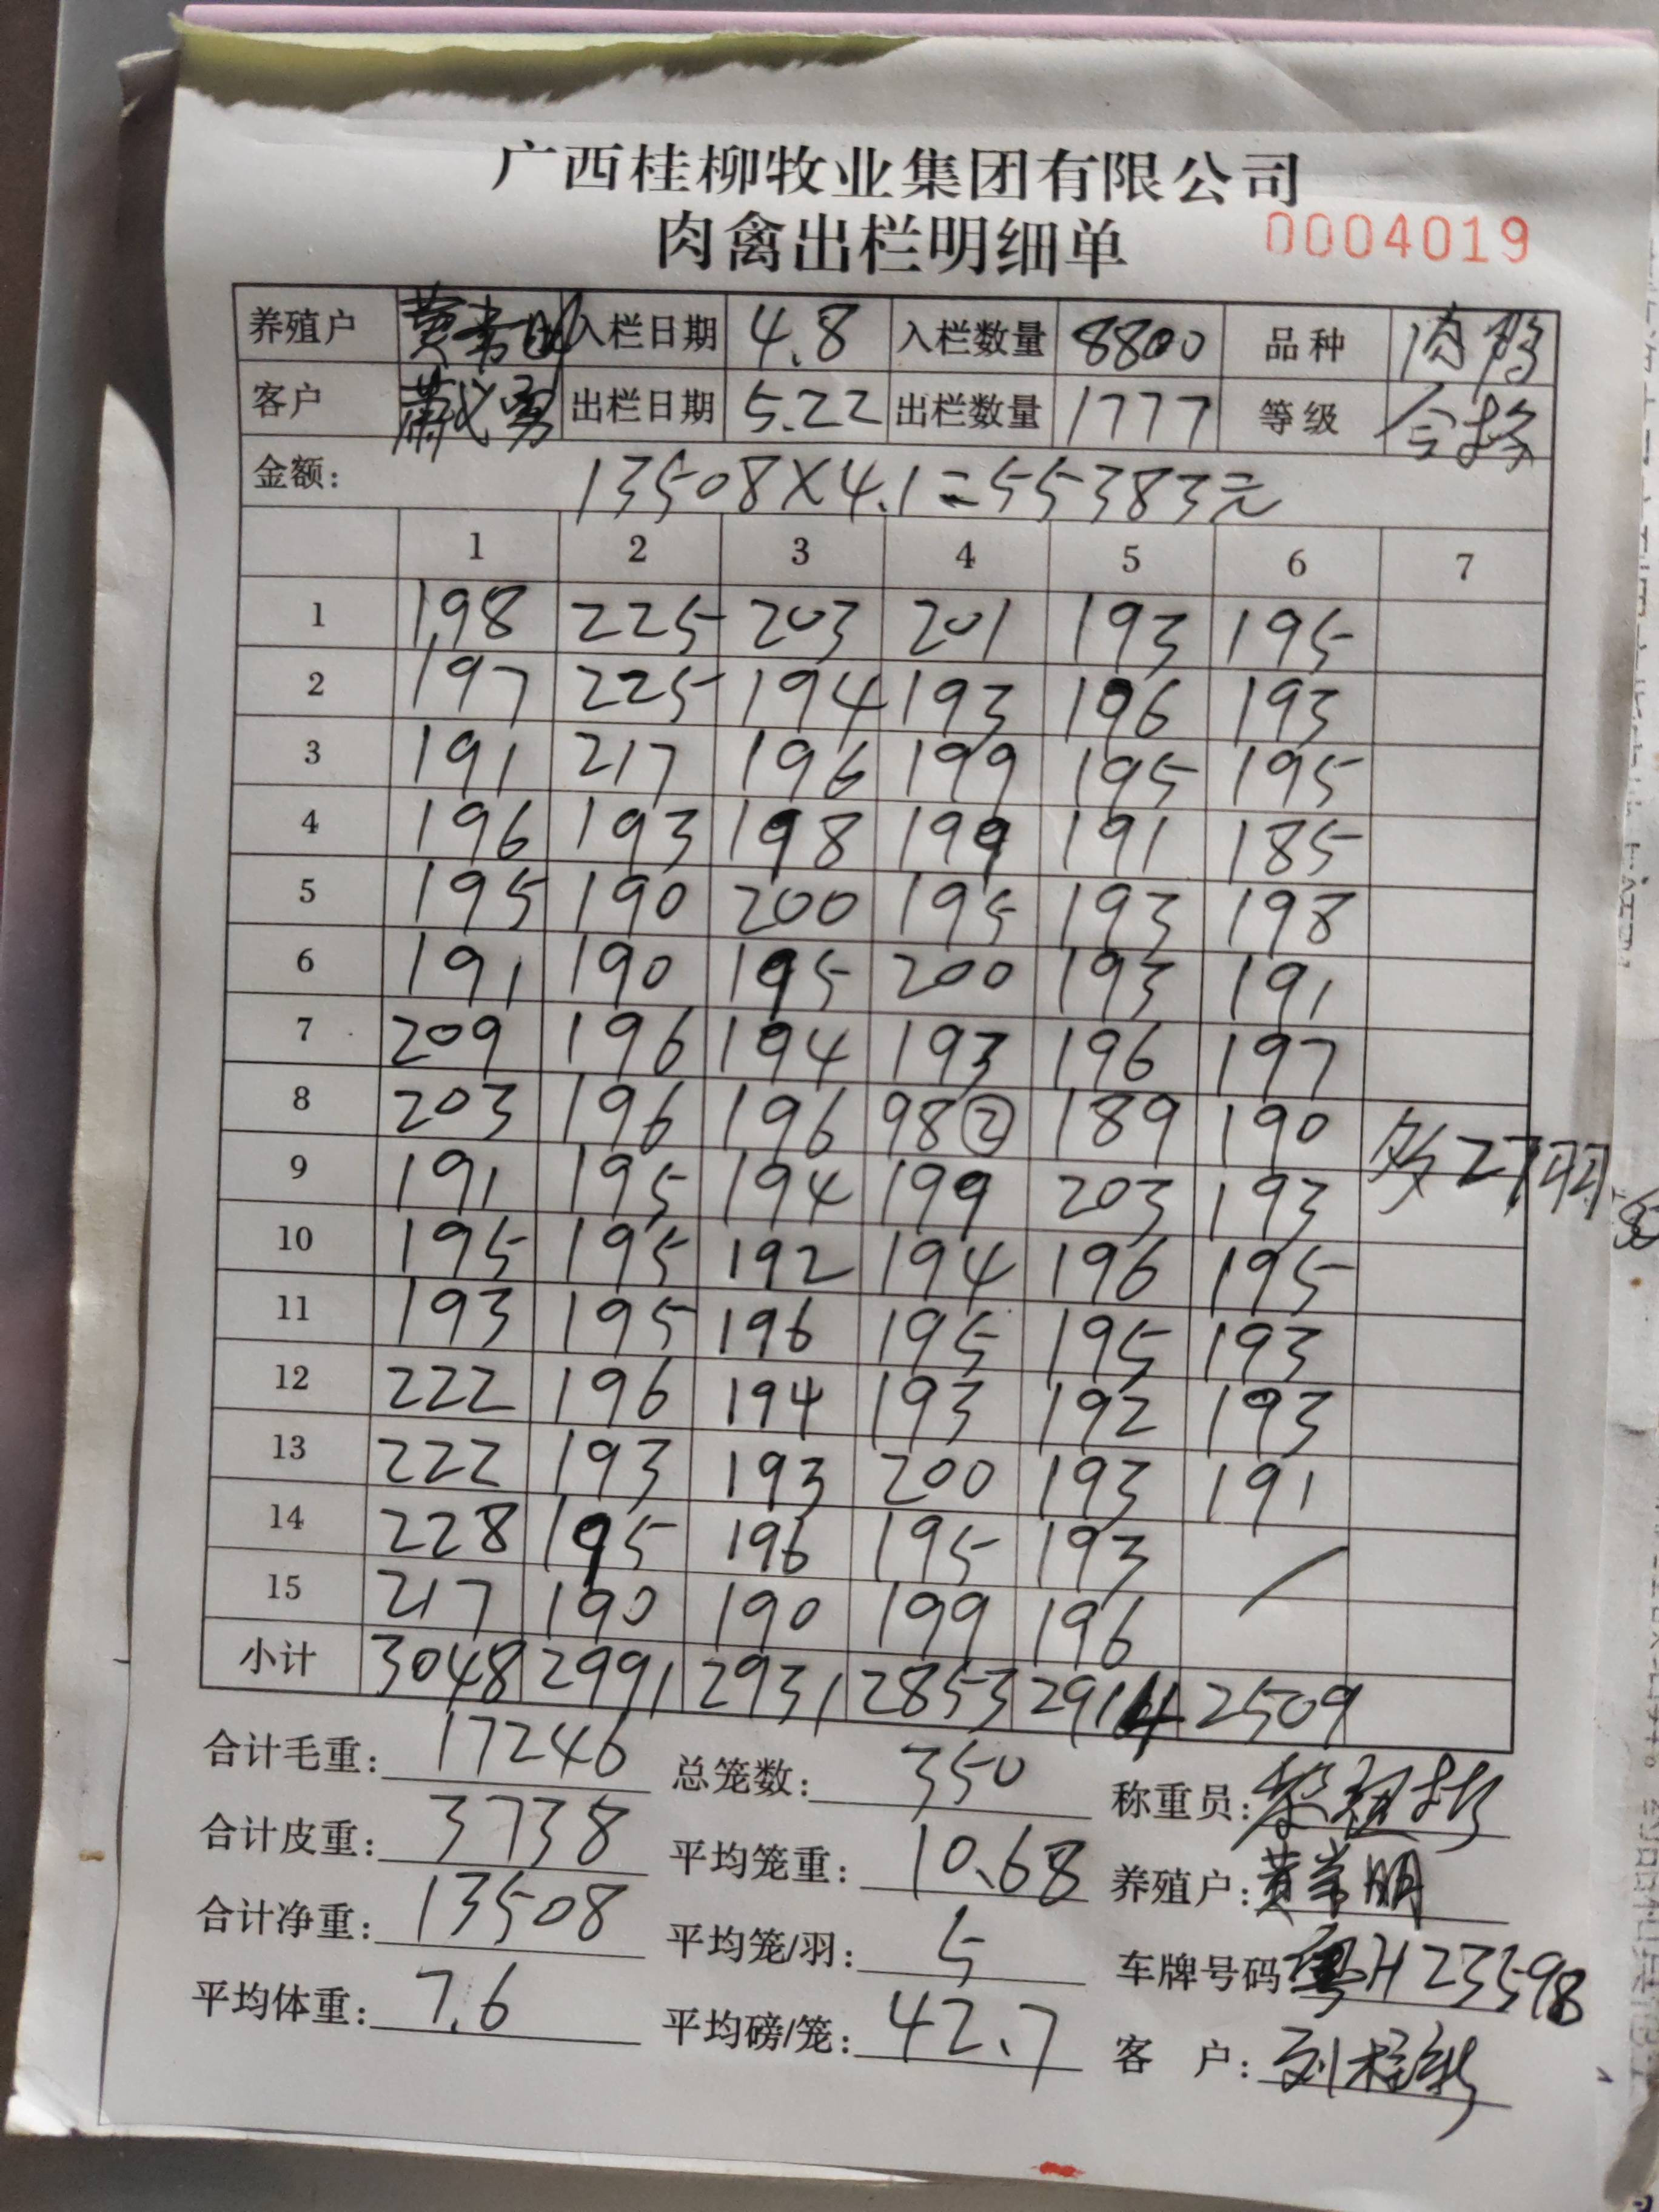 广西桂柳牧业集团有限公司
肉禽出栏明细单 0004019
养殖户 黄常明 入栏日期 4.8 入栏数量 8800 品种 肉鸭
客户 萧戈勇 出栏日期 5.22 出栏数量 1777 等级 合格
金额: 13508×4.1=55383元
1 2 3 4 5 6 7
1 198 225 203 201 193 195
2 197 225 194 193 196 193
3 191 217 196 199 195 195
4 196 193 198 199 191 185
5 195 190 200 195 193 198
6 191 190 195 200 193 191
7 209 196 194 193 196 197
8 203 196 196 98② 189 190 多27羽
9 191 195 194 199 203 193
10 195 195 192 194 196 195
11 193 195 196 195 195 193
12 222 196 194 193 192 193
13 222 193 193 200 193 191
14 228 195 196 195 193
15 217 190 190 199 196
小计 3048 2991 2931 2853 2914 2509
合计毛重: 17246 总笼数: 350 称重员:
合计皮重: 3738 平均笼重: 10.68 养殖户: 黄常明
合计净重: 13508 平均笼/羽: 5 车牌号码 粤H23598
平均体重: 7.6 平均磅/笼: 42.7 客 户: